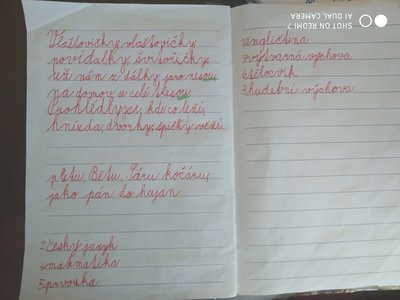 Vlaštovičky vlaštovičky
povídalky, švitořičky
už nám z dálky
na domov a celé třesou.
Prohlédly se, kde co leží,
hnízda, dvorky, špičky věží
pletu, Bětu, Sáru kočáru,
jako pán do hajan
2 český jazyk
4 matmatika
5 prvouka
1 angličtina
2 výtvarná výchova
6 tělocvik
3 hudební výchova
SHOT ON REDMI 7
AI DUAL CAMERA